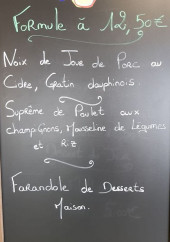 Formule à 12,50€
Noix de Joue de Porc au
Cidre, Gratin dauphinois.
Suprême de Poulet aux
champignons, Mousseline de Légumes
et Riz
Farandole de Desserts
Maison.